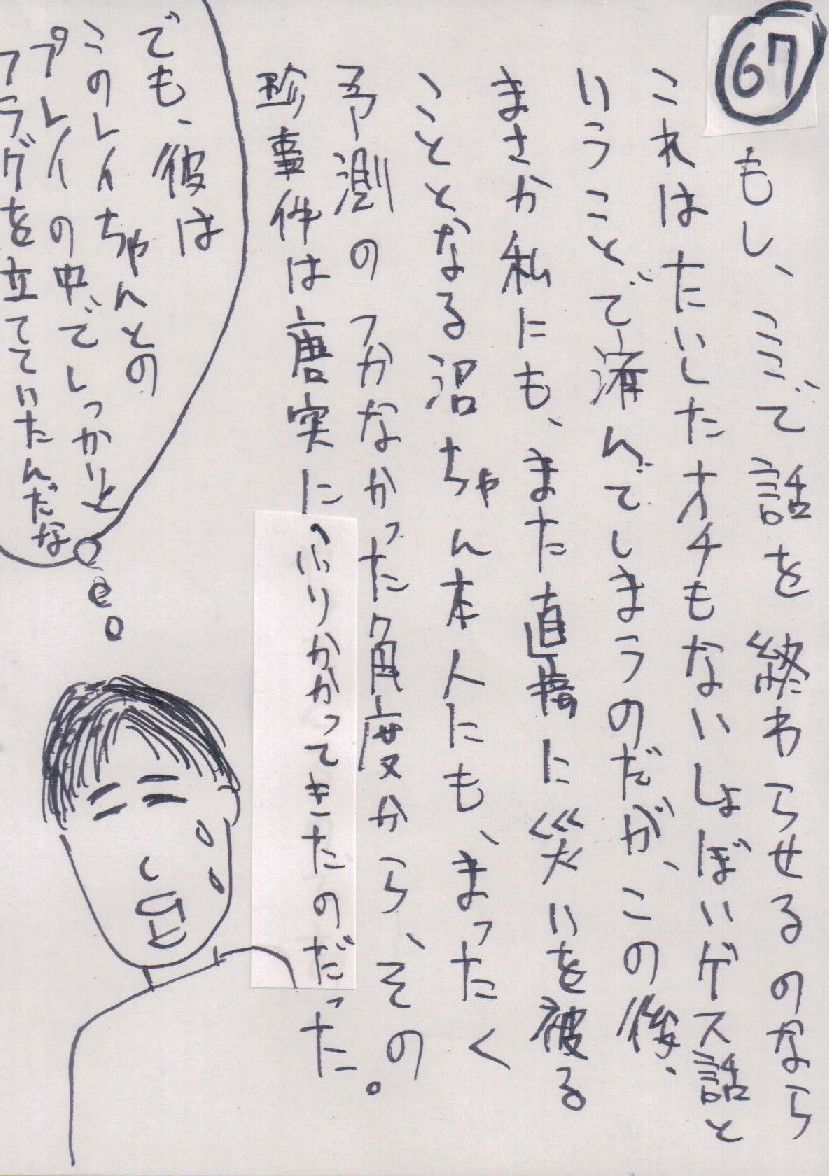 67
もし、ここで話を終わらせるのなら
これはたいしたオチもないしょぼいゲス話と
いうことで済んでしまうのだが、この後、
まさか私にも、また直接に災いを被る
こととなる沼ちゃん本人にも、まったく
予測のつかなかった角度から、その
珍事件は唐突にふりかかってきたのだった。
でも、彼は
このレイちゃんとの
プレイの中でしっかりと
フラグを立てていたんだな